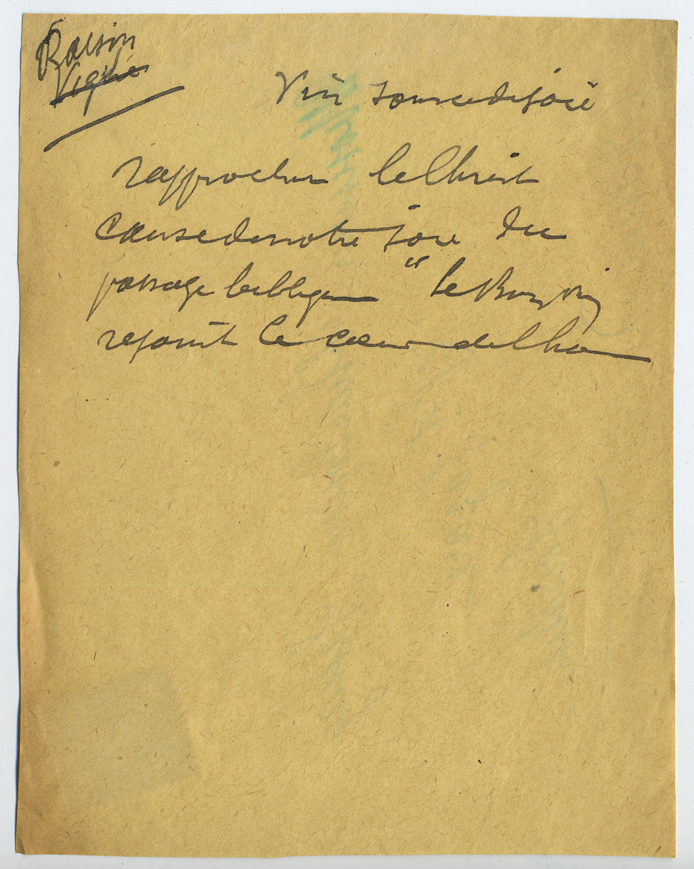 Raisin
Vigne
Vin source de joie
rapprocher le Christ
cause de notre joie du
passage biblique "le
rejouit le cœur de l'ho